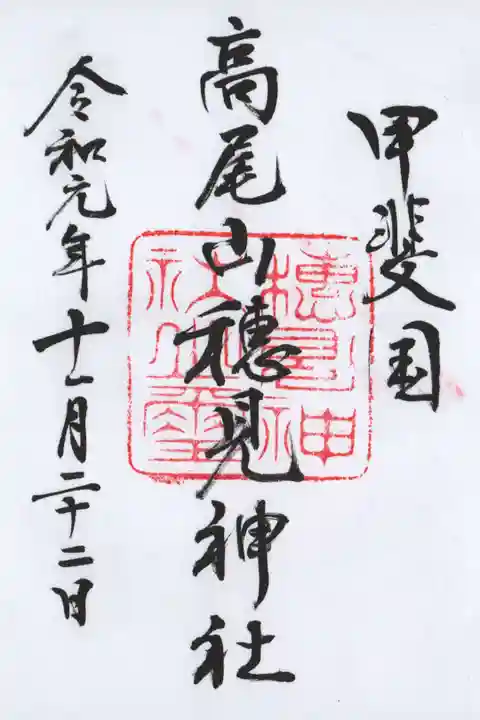 甲斐国
高尾山穂見神社
令和元年十一月二十二日